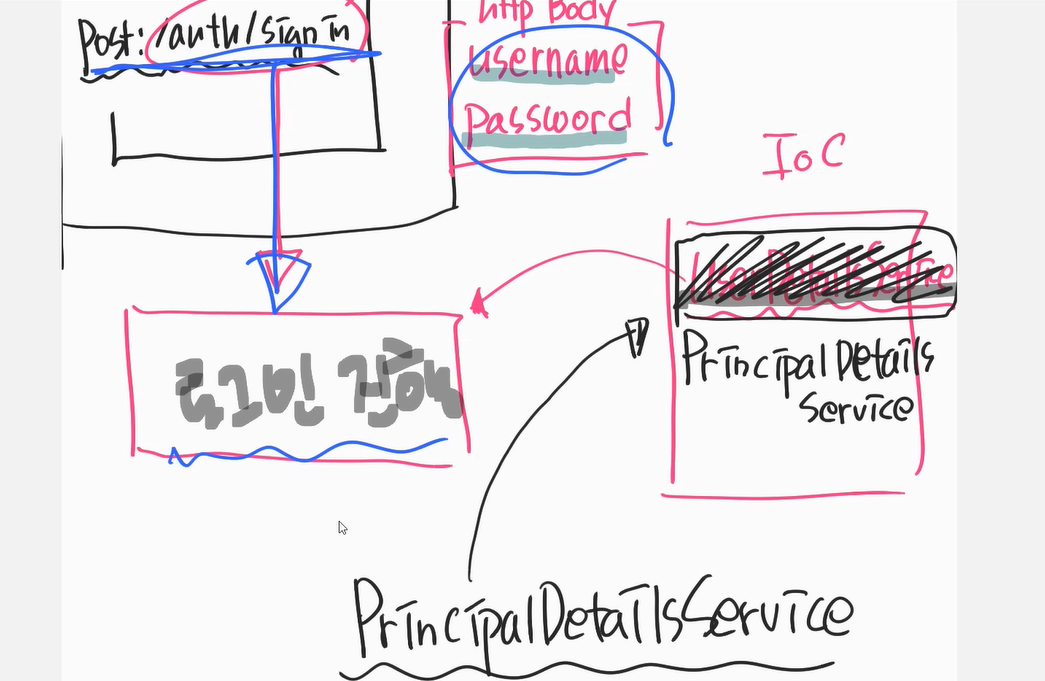 http Body
Post: /auth/signin
username
password
IoC
UserDetailsService
PrincipalDetails
Service
로그인 진행
PrincipalDetailsService